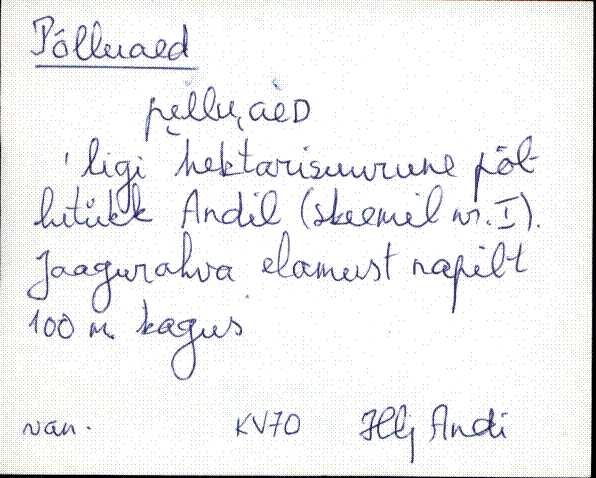 Põlluaed
pe̮llu‚aED
'ligi hektarisuurune põl-
lutükk Andil (skeemil nr. I).
Jaagurahva elamust napilt
100 m kagus
van. KV70 Hlj Andi